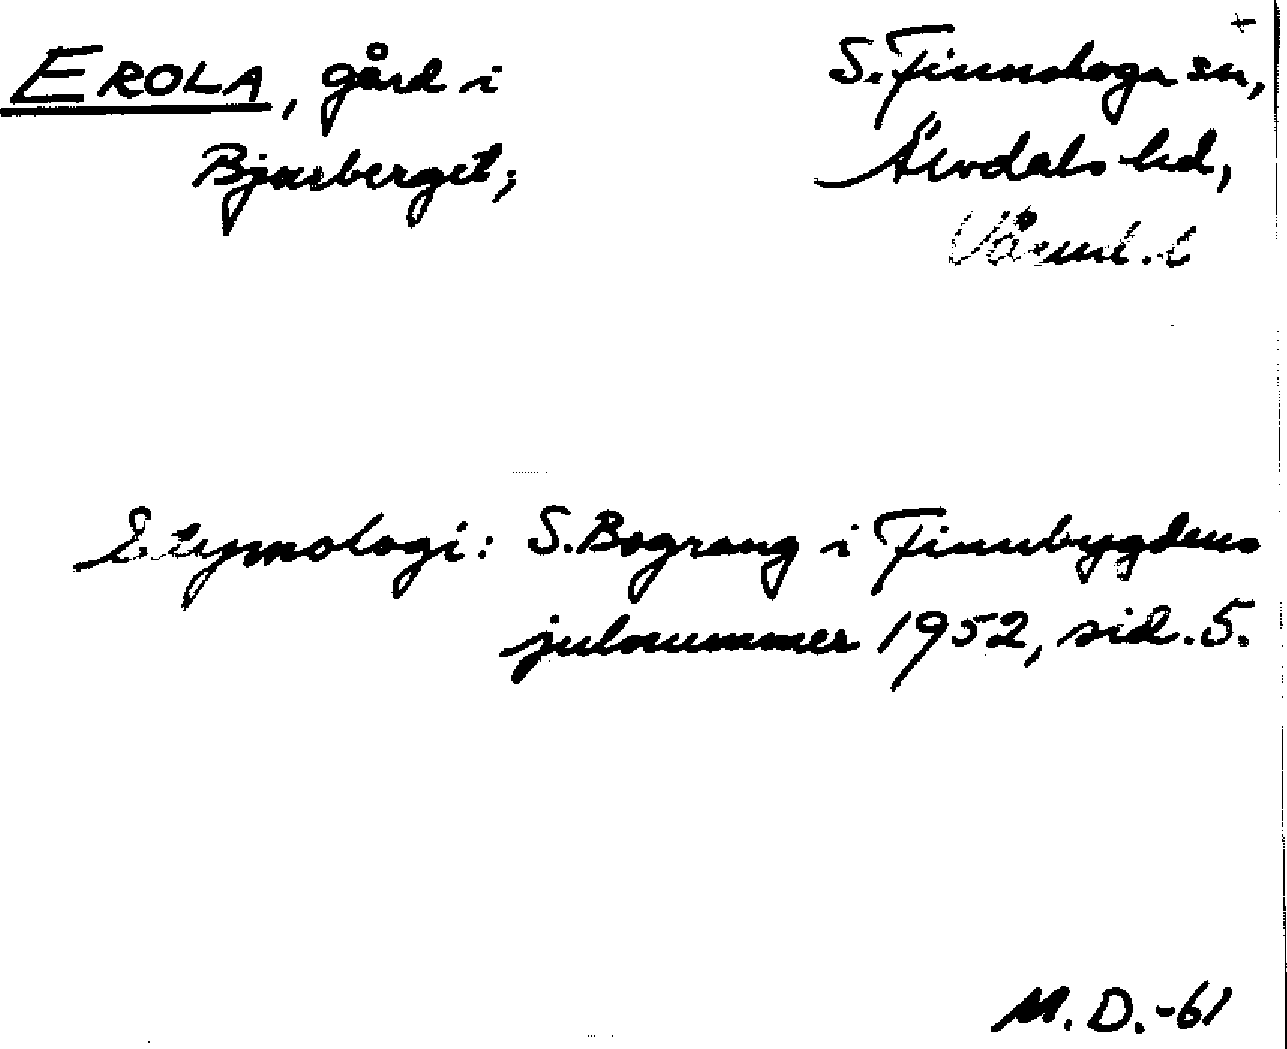 EROLA, gård i
Bjurberget;
S. Finnskoga sn,
Älvdals hd,
Värml. l
Etymologi: S. Bograng i Finnbygdens
julnummer 1952, sid. 5.
M. D. -61